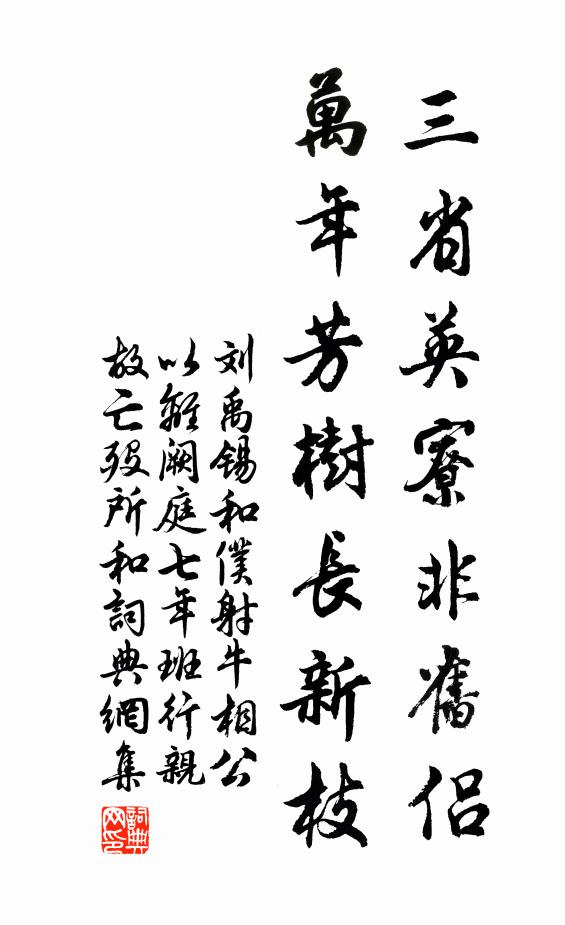 三省英寮非舊侶
萬年芳樹長新枝
刘禹锡和僕射牛相公
以離阙庭七年班行親
故亡殁所和詞典網集
詞典网印